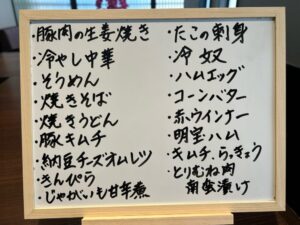 ・豚肉の生姜焼き
・冷やし中華
・そうめん
・焼きそば
・焼きうどん
・豚キムチ
・納豆チーズオムレツ
・きんぴら
・じゃがいも甘辛煮
・たこの刺身
・冷奴
・ハムエッグ
・コーンバター
・赤ウインナー
・明宝ハム
・キムチ、らっきょう
・とりむね肉
南蛮漬け